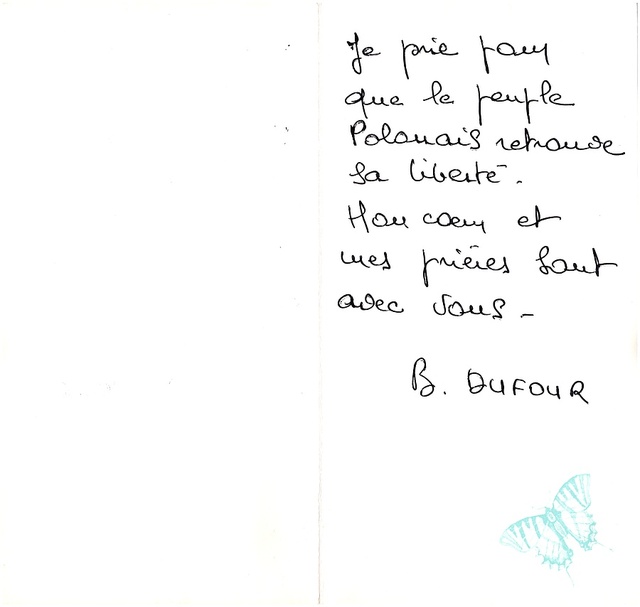 Je prie pour
que le peuple
Polonais retrouve
sa liberté.
Mon coeur et
mes prières sont
avec vous -
B. DUFOUR